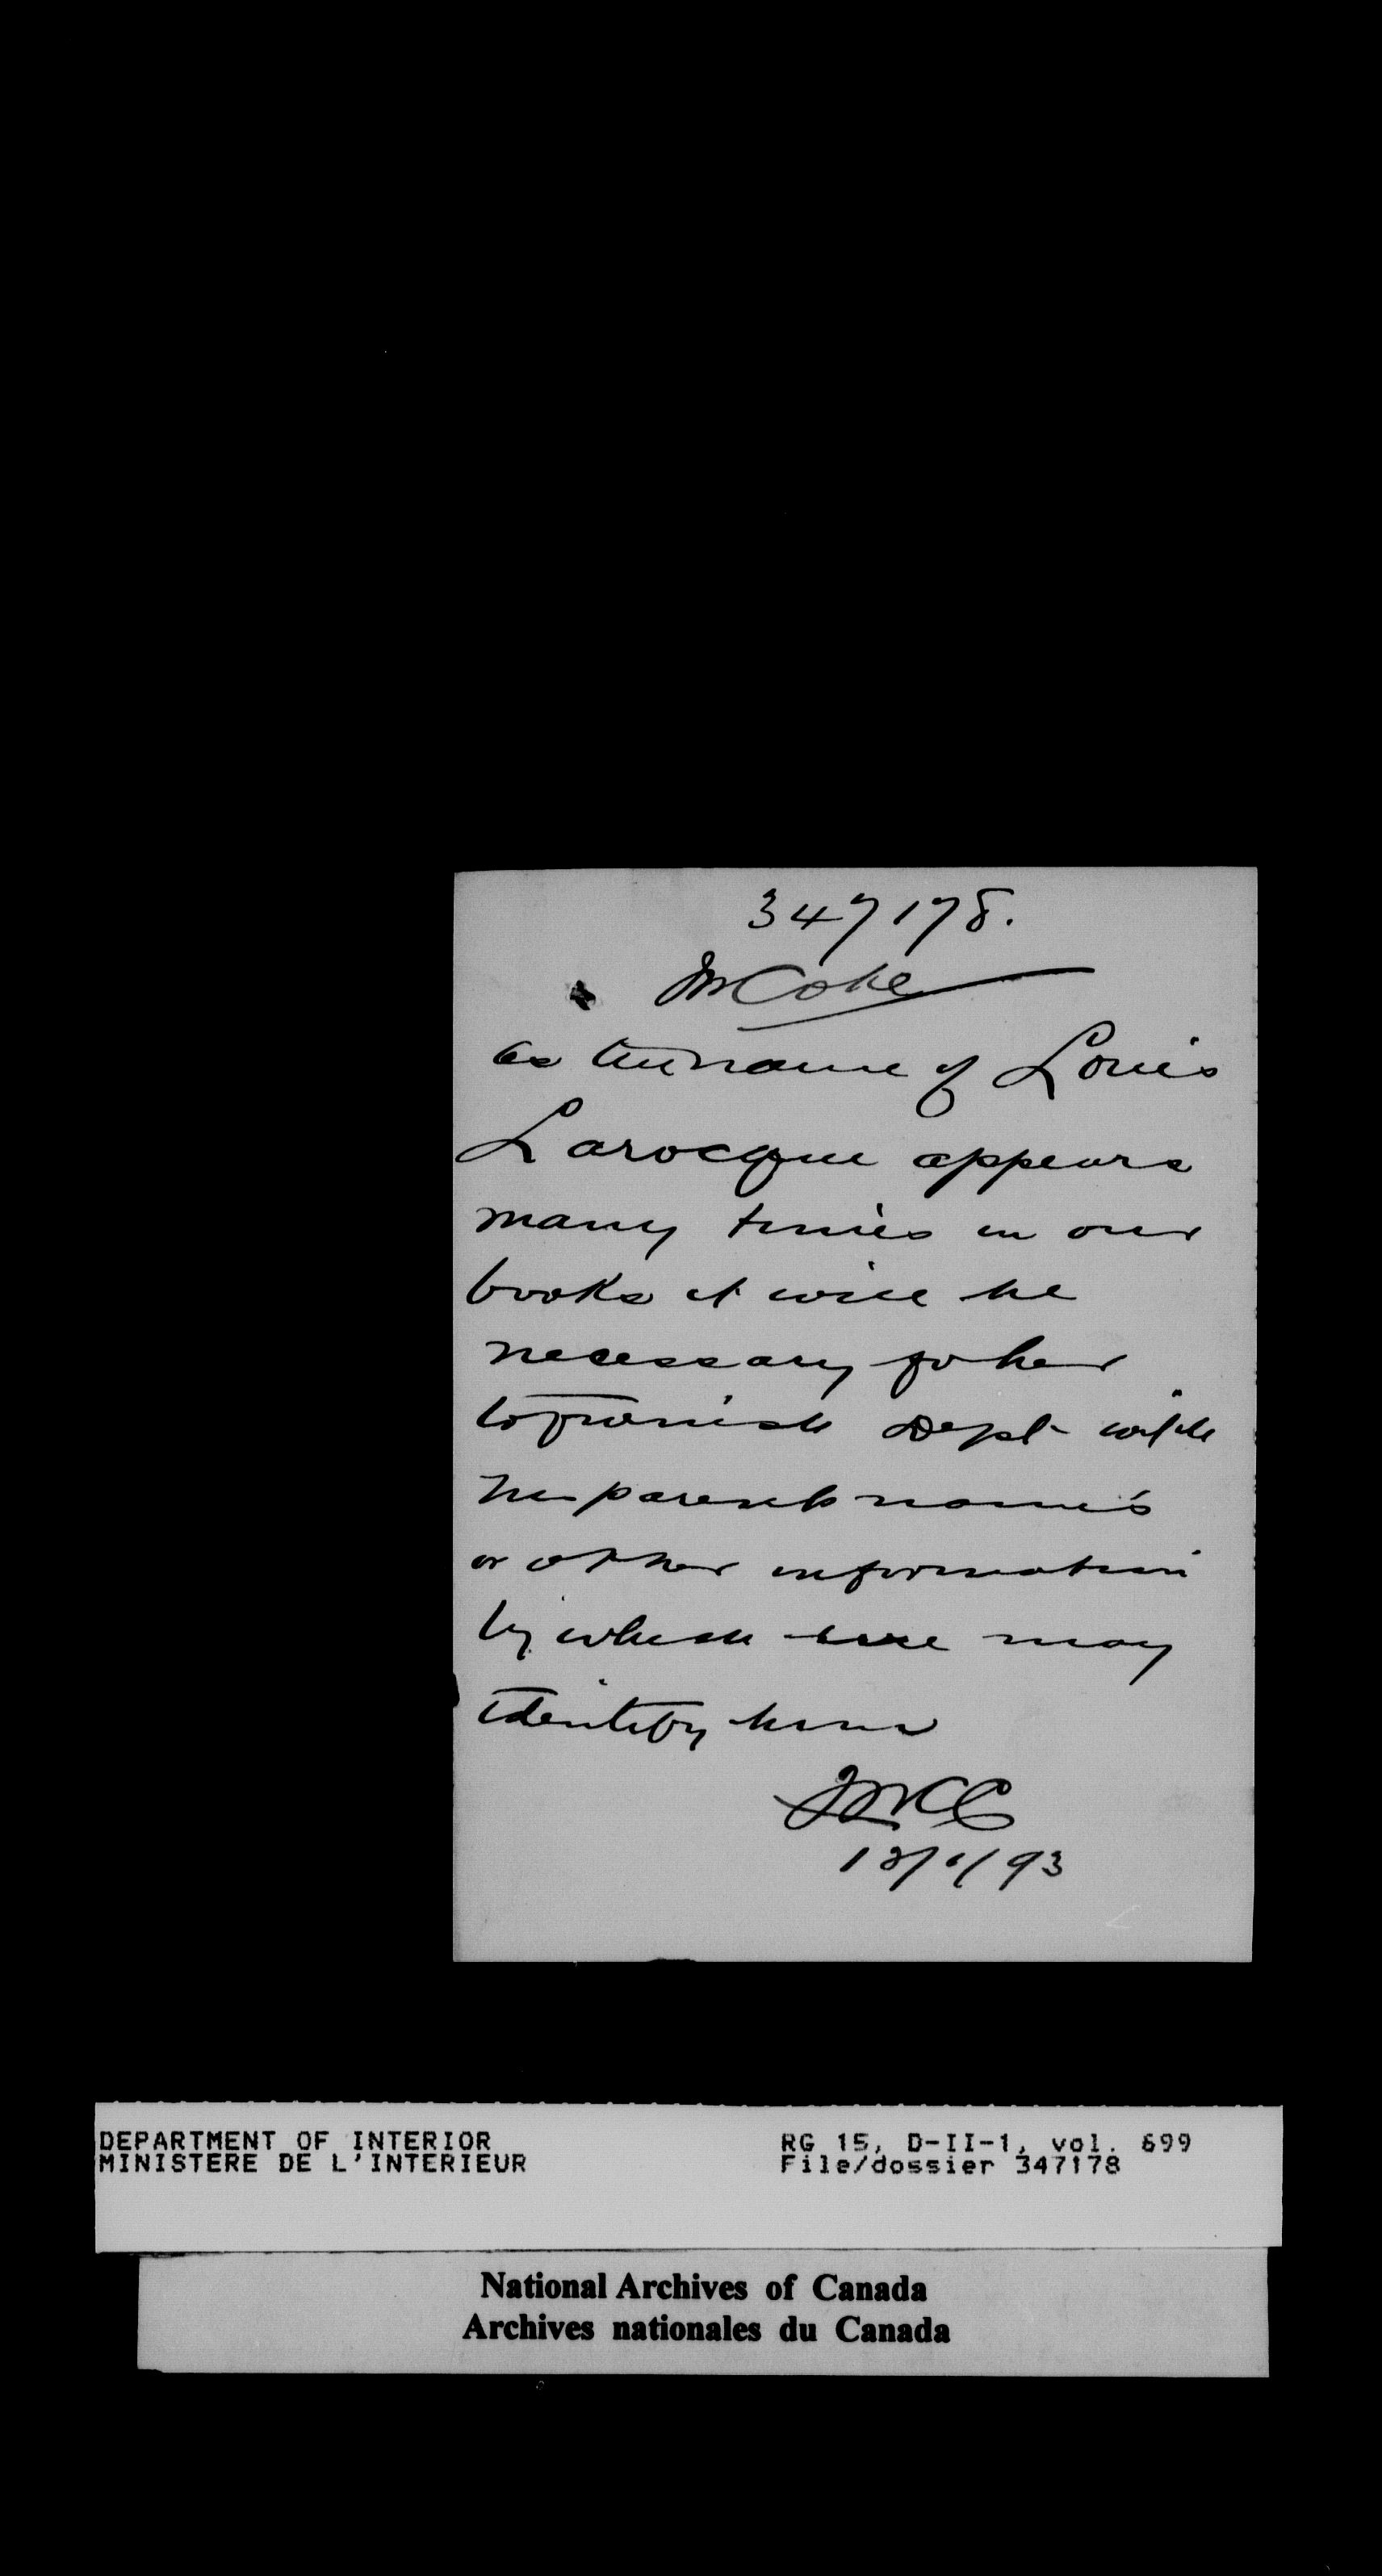 347178.
Mr Coke
As the name of Louis
Larocque appears
many times in our
books it will be
necessary for her
to furnish Dept with
his parents names
or other information
by which we may
identify him
13/1/93
DEPARTMENT OF INTERIOR
MINISTERE DE L'INTERIEUR
RG 15, D-II-1, vol. 699
File/dossier 347178
National Archives of Canada
Archives nationales du Canada